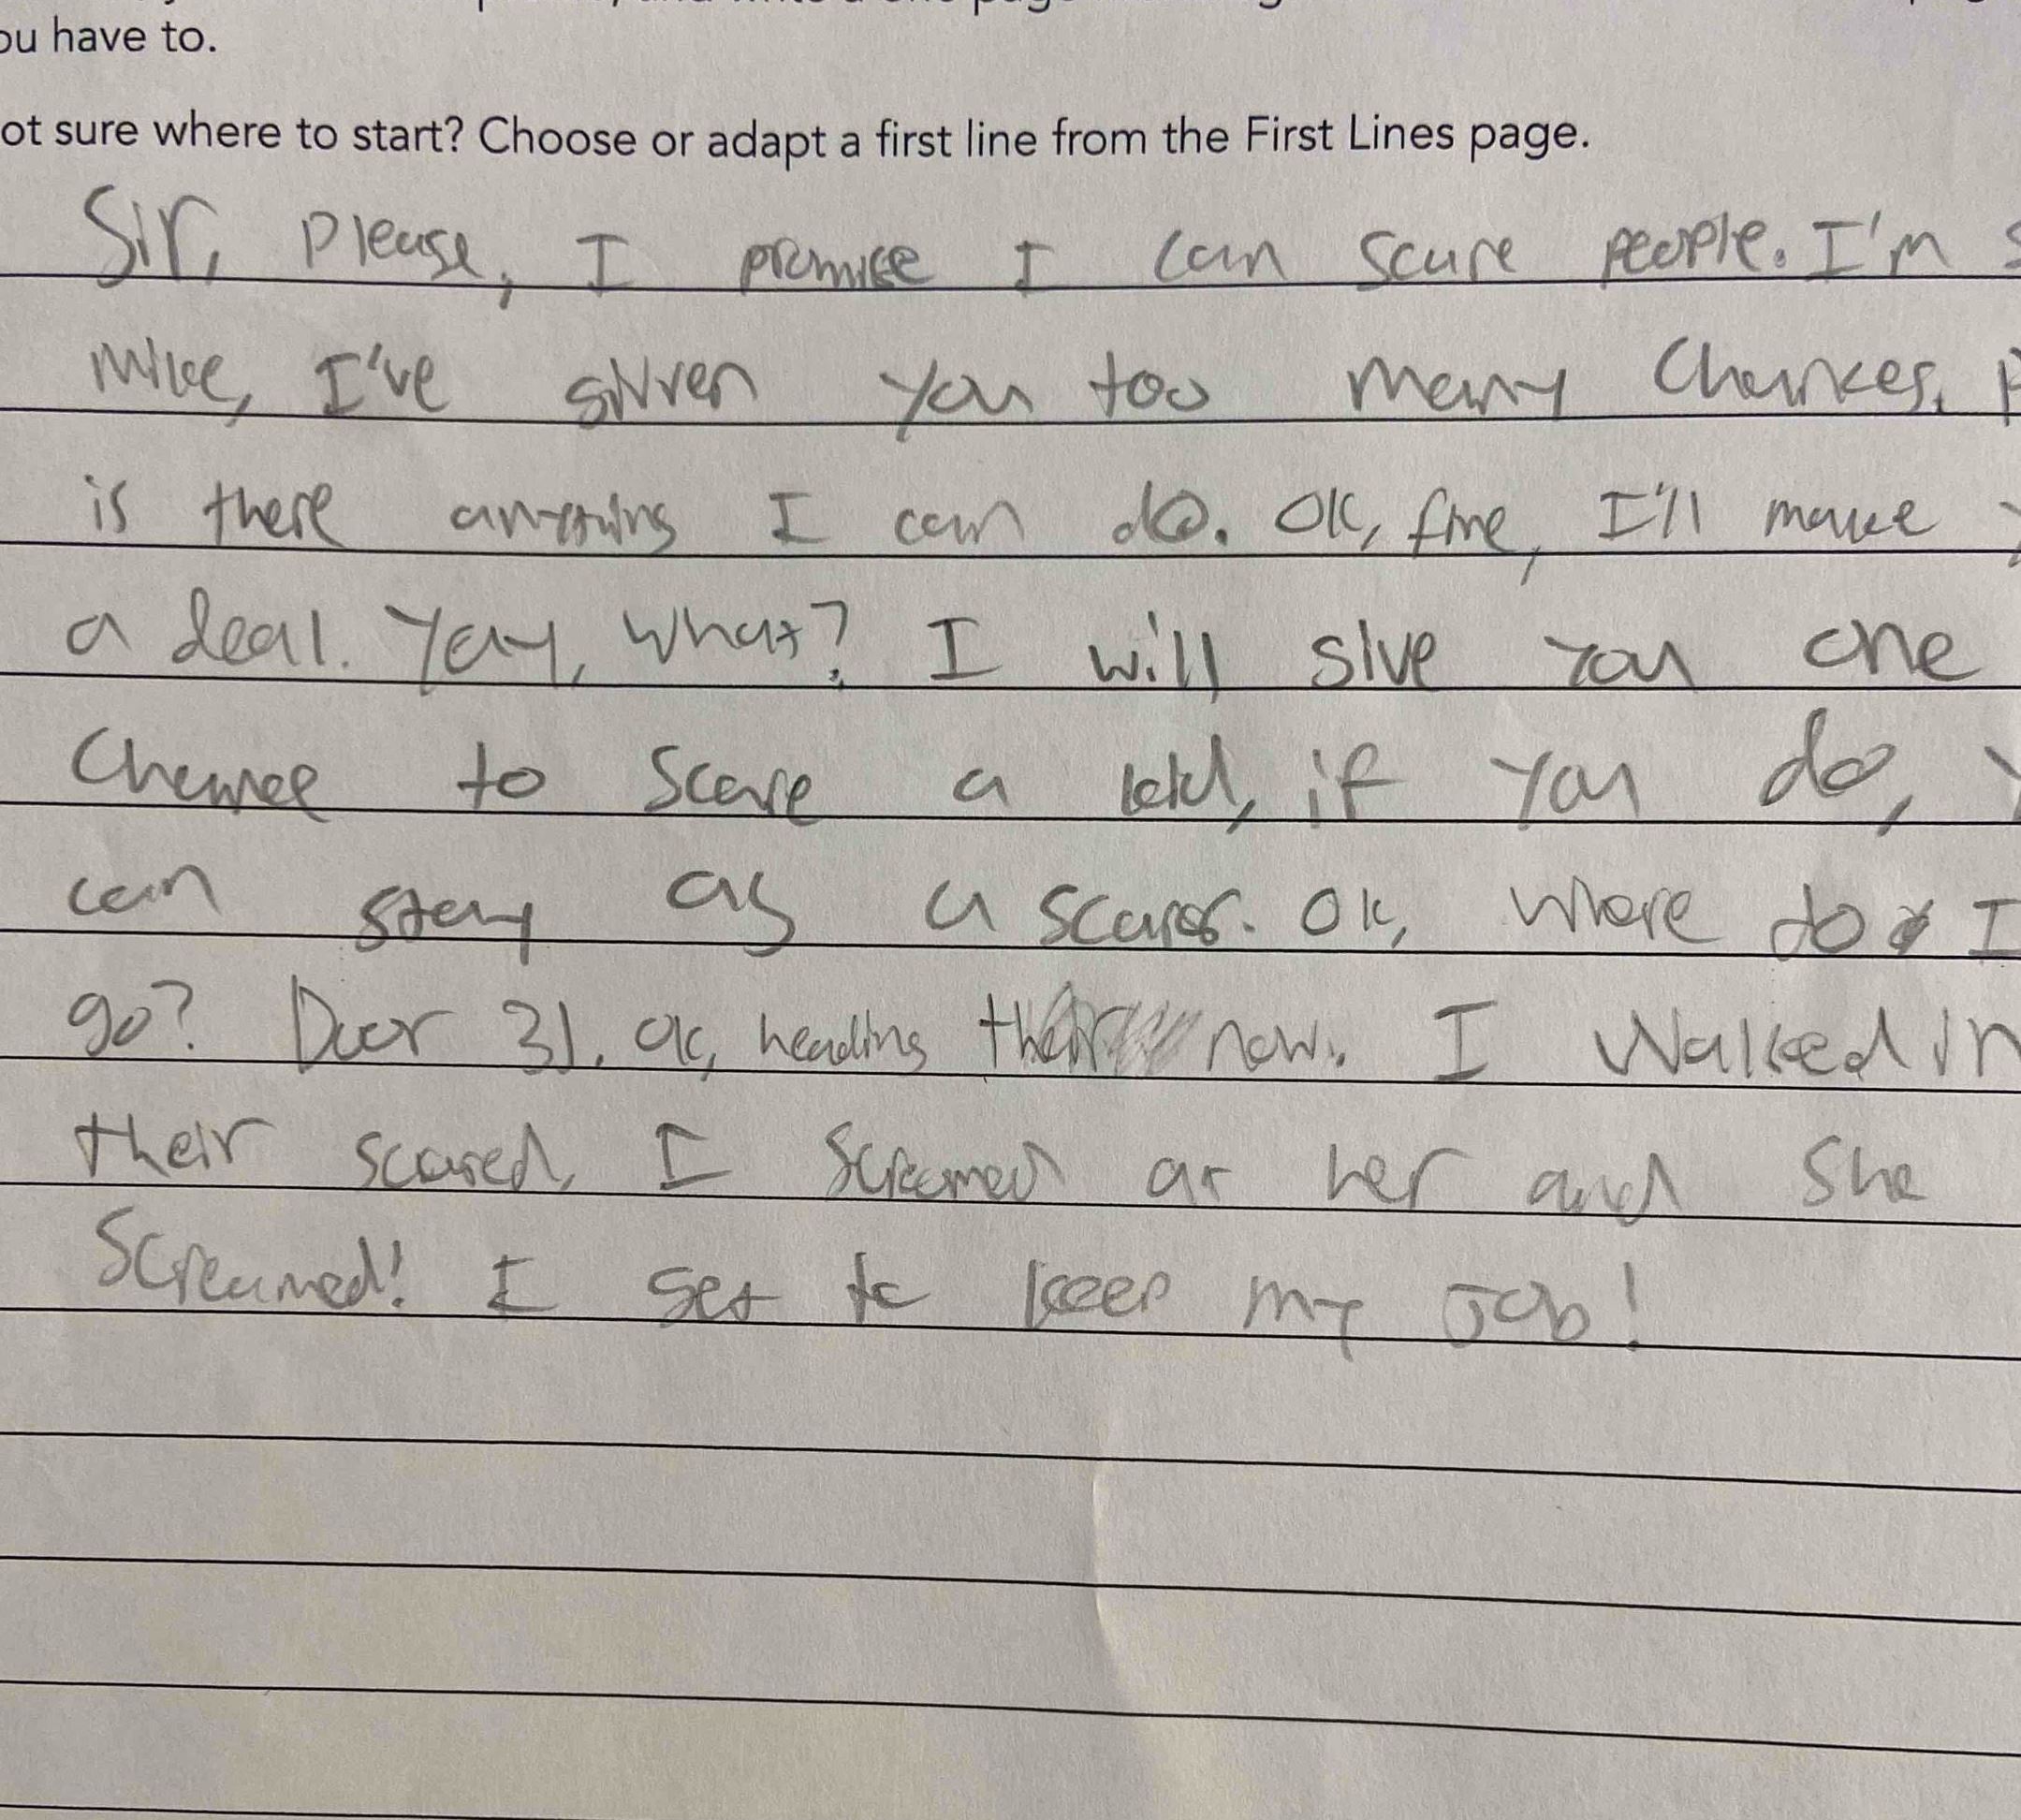 ou have to.
ot sure where to start? Choose or adapt a first line from the First Lines page.
Sir, please, I promise I can scare people. I'm
Mike, I've given you too many chances,
is there anything I can do. Ok, fine, I'll make
a deal. Yay, what? I will give you one
chance to scare a kid, if you do,
can stay as a scarer. Ok, where do I
go? Door 31. ok, heading their now. I walked in
their scared, I screamed at her and she
screamed! I get to keep my job!